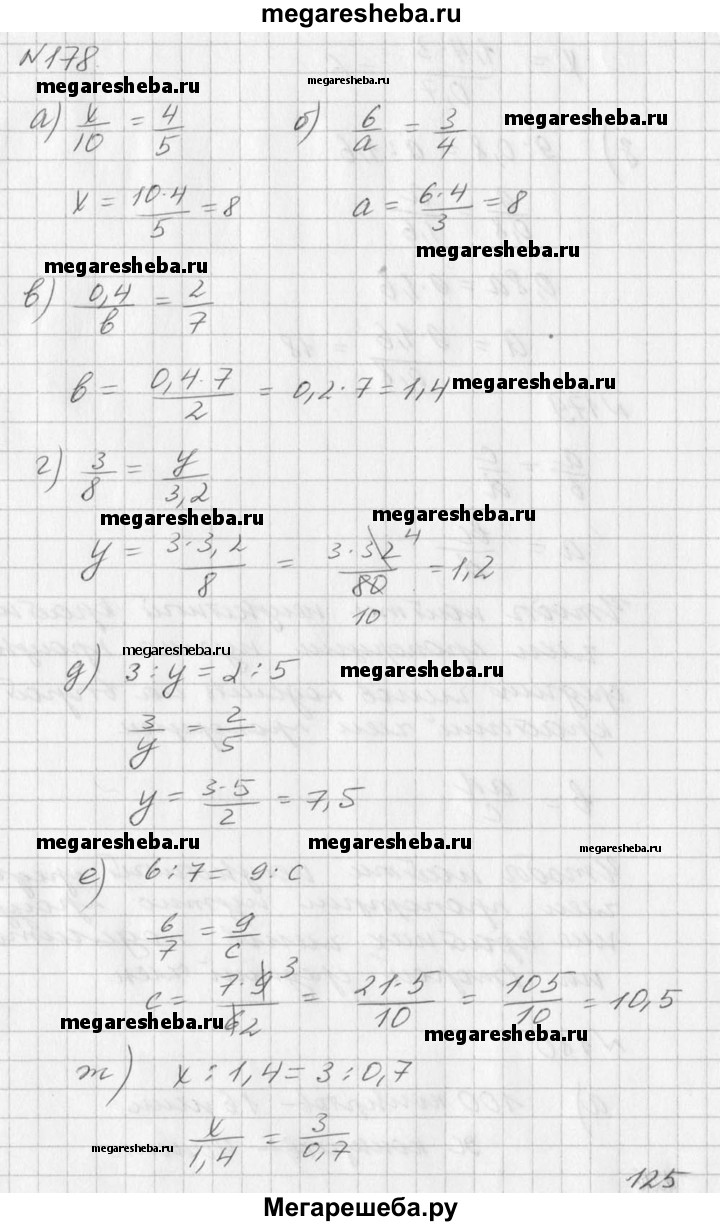 megaresheba.ru
N178
megaresheba.ru megaresheba.ru
а) x/10 = 4/5 б) 6/a = 3/4 megaresheba.ru
x = 10·4/5 = 8 a = 6·4/3 = 8
megaresheba.ru
megaresheba.ru
в) 0,4/в = 2/7
в = 0,4·7/2 = 0,2·7 = 1,4 megaresheba.ru
г) 3/8 = y/3,2
megaresheba.ru megaresheba.ru
y = 3·3,2/8 = 3·32 4/80 10 = 1,2
megaresheba.ru
д) 3 : y = 2 : 5 megaresheba.ru
3/y = 2/5
y = 3·5/2 = 7,5
megaresheba.ru megaresheba.ru megaresheba.ru
е) 6 : 7 = 9 : c
6/7 = 9/c
c = 7·9 3/6 2 = 21·5/10 = 105/10 = 10,5
megaresheba.ru megaresheba.ru
ж) x : 1,4 = 3 : 0,7
megaresheba.ru
x/1,4 = 3/0,7
125
Мегарешеба.ру